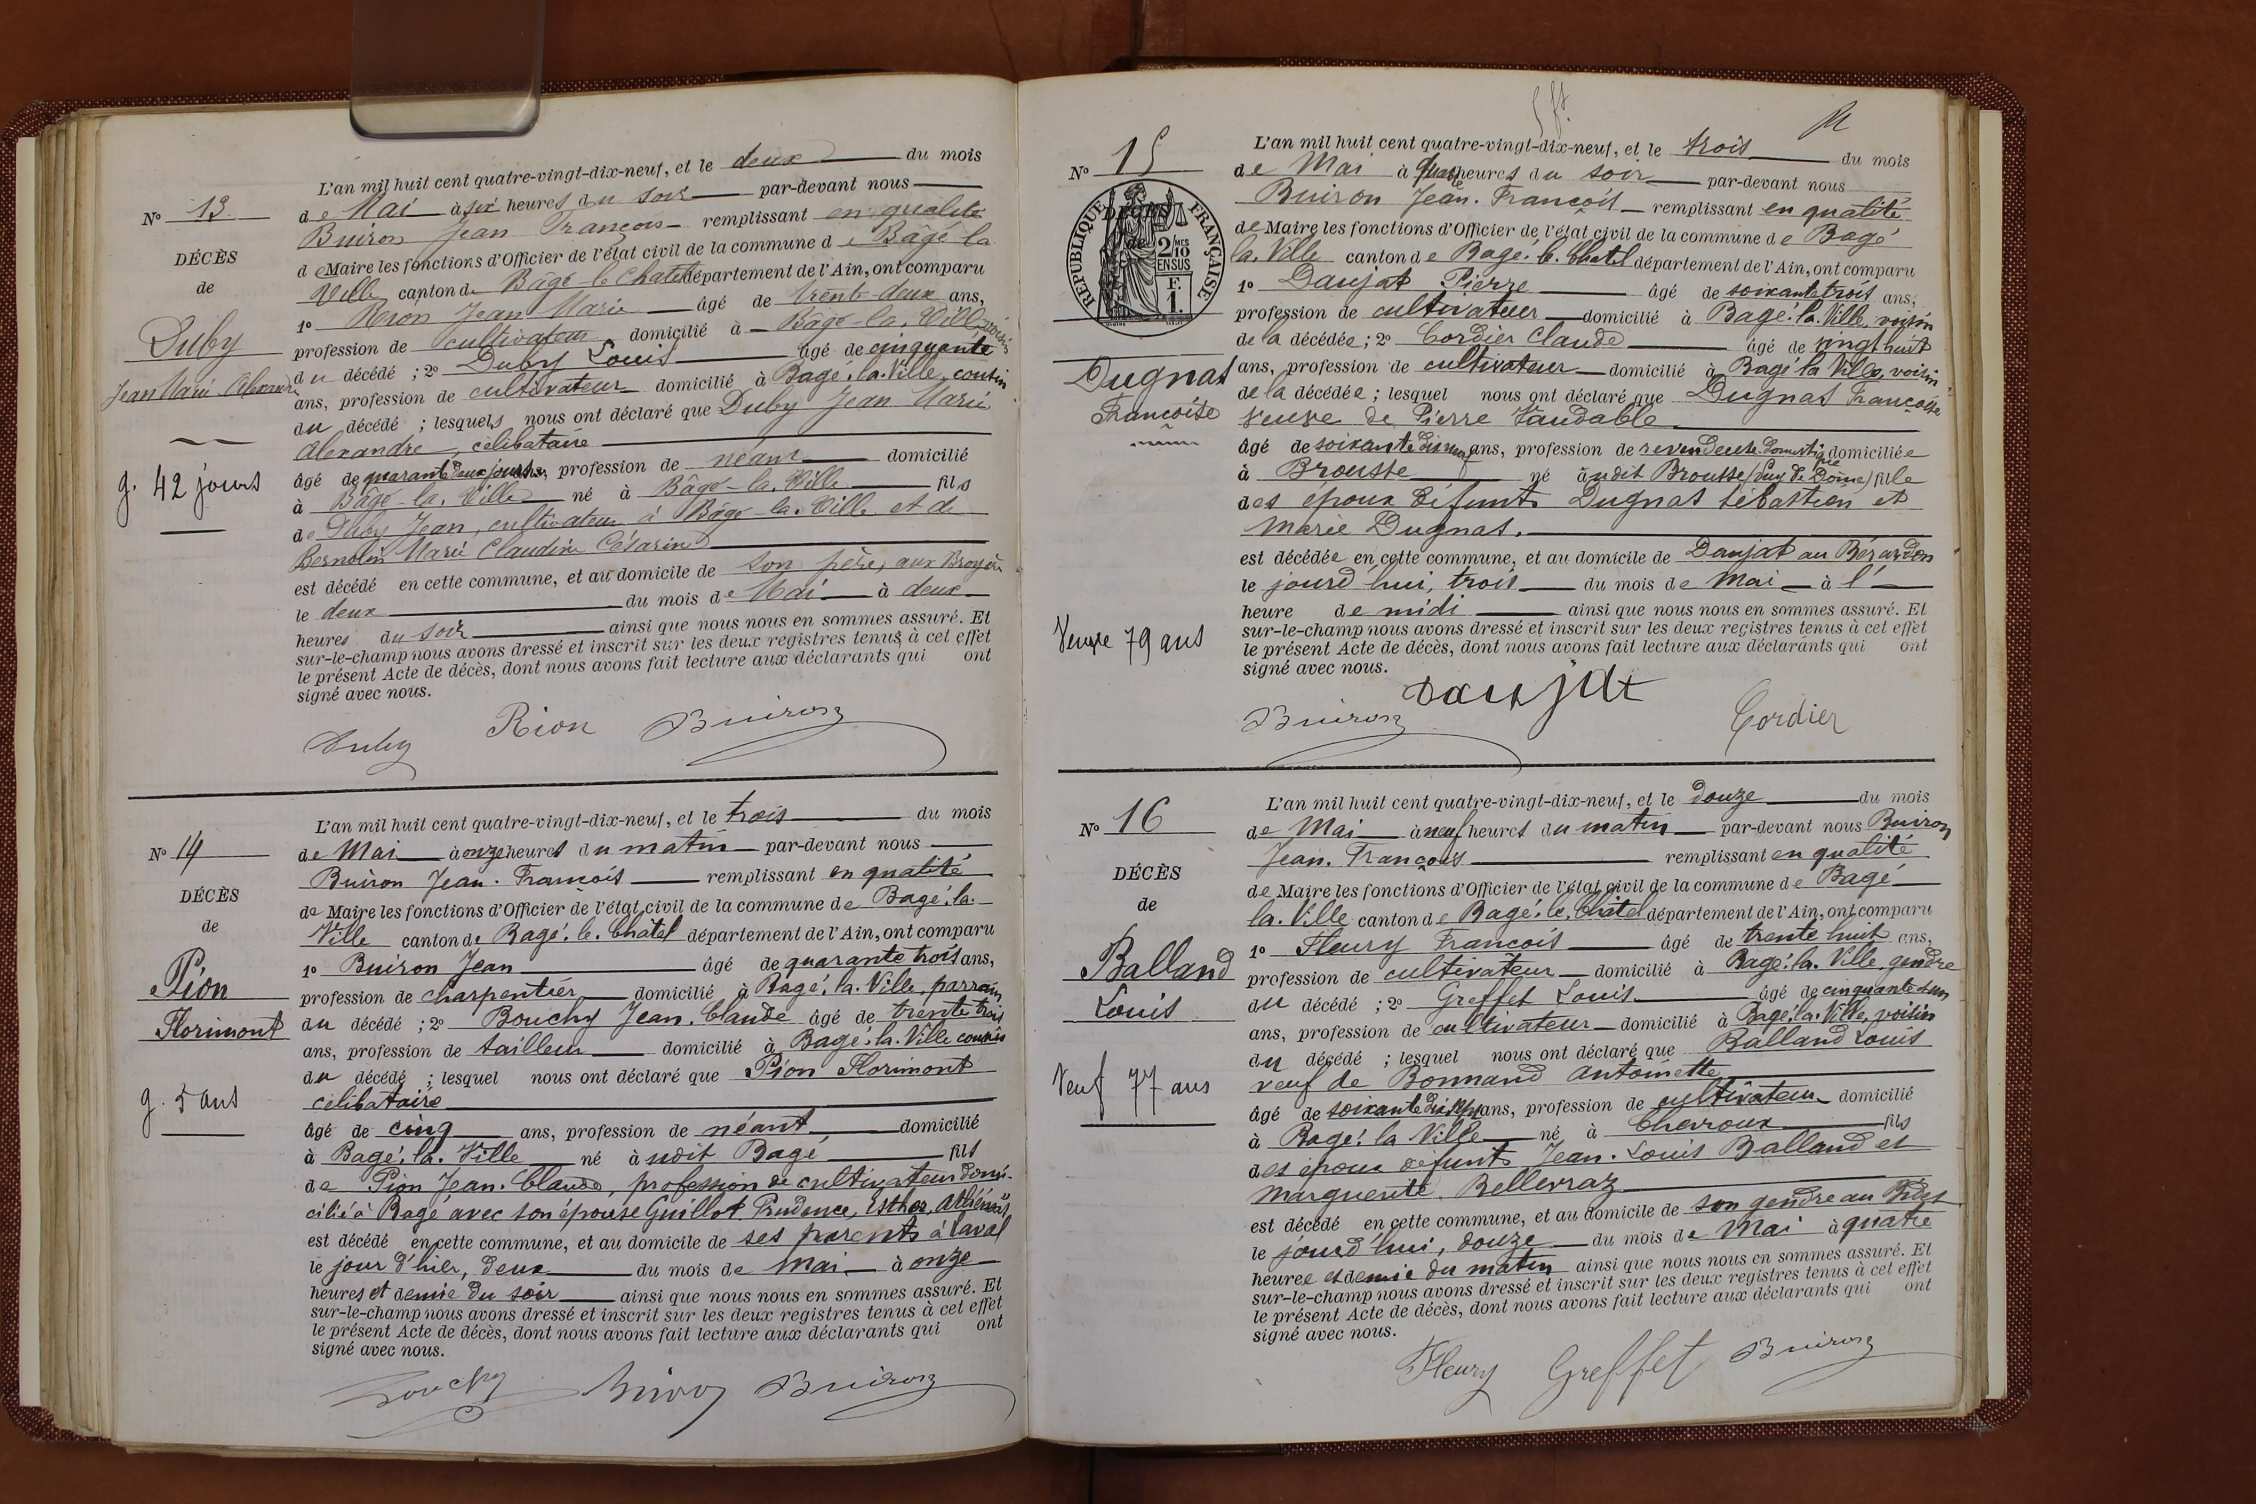 L'an mil huit cent quatre-vingt-dix-neuf, et le deux du mois
N° 13
de Mai à six heures du soir par-devant nous
Buiron Jean François remplissant en qualité
DÉCÈS
de Maire les fonctions d'Officier de l'état civil de la commune de Bâgé-la
de
Ville canton de Bâgé-le-Châtel département de l'Ain, ont comparu
1° Rion Jean Marie âgé de trente-deux ans,
Duby
profession de cultivateur domicilié à Bâgé-la-Ville, voisin
Jean Marie Alexandre
du décédé ; 2° Duby Louis âgé de cinquante
ans, profession de cultivateur domicilié à Bagé-la-Ville, cousin
du décédé ; lesquels nous ont déclaré que Duby Jean Marie
Alexandre, célibataire
g. 42 jours
âgé de quarante deux jours, profession de néant domicilié
à Bâgé-la-Ville né à Bâgé-la-Ville fils
de Duby Jean, cultivateur à Bâgé-la-Ville et de
Bernolin Marie Claudine Césarine
est décédé en cette commune, et au domicile de son père, aux Broyères
le deux du mois de Mai à deux
heures du soir ainsi que nous nous en sommes assuré. Et
sur-le-champ nous avons dressé et inscrit sur les deux registres tenus à cet effet
le présent Acte de décès, dont nous avons fait lecture aux déclarants qui ont
signé avec nous.
Duby Rion Buiron
L'an mil huit cent quatre-vingt-dix-neuf, et le trois du mois
N° 14
de Mai à onze heures du matin par-devant nous
Buiron Jean-François remplissant en qualité
DÉCÈS
de Maire les fonctions d'Officier de l'état civil de la commune de Bagé-la-
de
Ville canton de Bagé-le-Châtel département de l'Ain, ont comparu
1° Buiron Jean âgé de quarante trois ans,
Pion
profession de charpentier domicilié à Bagé-la-Ville, parrain
Florimont
du décédé ; 2° Bouchy Jean-Claude âgé de trente trois
ans, profession de tailleur domicilié à Bagé-la-Ville cousin
du décédé ; lesquel nous ont déclaré que Pion Florimont
g. 5 ans
célibataire
âgé de cinq ans, profession de néant domicilié
à Bagé-la-Ville né à udit Bagé fils
de Pion Jean-Claude, profession de cultivateur domi-
cilié à Bagé avec son épouse Guillot Prudence, Esther, Athénaïs
est décédé en cette commune, et au domicile de ses parents à Laval
le jour d'hier, deux du mois de Mai à onze
heures et demie du soir ainsi que nous nous en sommes assuré. Et
sur-le-champ nous avons dressé et inscrit sur les deux registres tenus à cet effet
le présent Acte de décès, dont nous avons fait lecture aux déclarants qui ont
signé avec nous.
Bouchy Buiron Buiron
L'an mil huit cent quatre-vingt-dix-neuf, et le trois du mois
N° 15
de Mai à quatre heures du soir par-devant nous
Buiron Jean-François remplissant en qualité
RÉPUBLIQUE FRANÇAISE
DÉCÈS
de
2/10 MES
EN SUS
F.
1.
de Maire les fonctions d'Officier de l'état civil de la commune de Bagé
la-Ville canton de Bagé-le-Châtel département de l'Ain, ont comparu
1° Daujat Pierre âgé de soixante trois ans,
profession de cultivateur domicilié à Bagé-la-Ville, voisin
de la décédée ; 2° Cordier Claude âgé de vingt huit
Dugnat
Françoise
ans, profession de cultivateur domicilié à Bagé la Ville, voisin
de la décédée ; lesquel nous ont déclaré que Dugnat Françoise
veuve de Pierre Vaudable
âgé de soixante dix neuf ans, profession de revendeuse domestique domiciliée
à Brousse né à udit Brousse (Puy de Dôme) fille
des époux défunts Dugnat Sébastien et
Marie Dugnat.
est décédée en cette commune, et au domicile de Daujat au Bérardon
le jourd'hui, trois du mois de Mai à l'
heure de midi ainsi que nous nous en sommes assuré. Et
Veuve 79 ans
sur-le-champ nous avons dressé et inscrit sur les deux registres tenus à cet effet
le présent Acte de décès, dont nous avons fait lecture aux déclarants qui ont
signé avec nous.
Buiron Daujat Cordier
L'an mil huit cent quatre-vingt-dix-neuf, et le douze du mois
N° 16
de Mai à neuf heures du matin par-devant nous Buiron
Jean-François remplissant en qualité
DÉCÈS
de Maire les fonctions d'Officier de l'état civil de la commune de Bagé
de
la-Ville canton de Bagé-le-Châtel département de l'Ain, ont comparu
1° Fleury François âgé de trente huit ans,
Balland
profession de cultivateur domicilié à Bagé-la-Ville, gendre
Louis
du décédé ; 2° Greffet Louis âgé de cinquante et un
ans, profession de cultivateur domicilié à Bagé-la-Ville, voisin
du décédé ; lesquel nous ont déclaré que Balland Louis
Veuf 77 ans
veuf de Bonnand Antoinette
âgé de soixante dix sept ans, profession de cultivateur domicilié
à Bagé-la Ville né à Chevroux fils
des époux défunts Jean-Louis Balland et
Marguerite Bellevraz
est décédé en cette commune, et au domicile de son gendre au
le jourd'hui, douze du mois de Mai à quatre
heures et demie du matin ainsi que nous nous en sommes assuré. Et
sur-le-champ nous avons dressé et inscrit sur les deux registres tenus à cet effet
le présent Acte de décès, dont nous avons fait lecture aux déclarants qui ont
signé avec nous.
Fleury Greffet Buiron